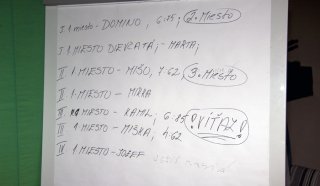 I. 1 miesto - DOMINO, 6:25; 2. MIESTO
I. 1 MIESTO DIEVČATÁ; - MARTA;
II 1 MIESTO - MIŠO, 7:62; 3. MIESTO
II 1. MIESTO - MIRKA
III 1 MIESTO - KAMIL, 6:25 ! VÍŤAZ !
III 1 MIESTO - MIŠKA, 4:62
IV 1 MIESTO - JOZEF